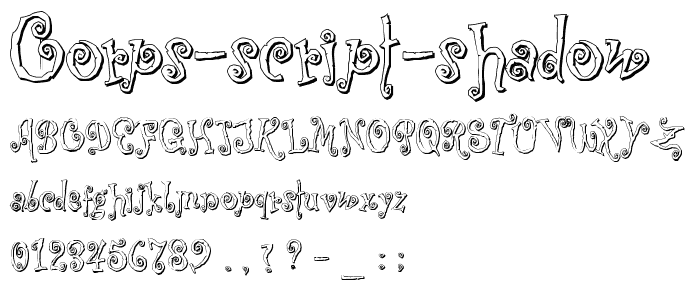 Corps-script-shadow
ABCDEFGHIJKLMNOPQRSTUVWXYZ
abcdefghijklmnopqrstuvwxyz
0123456789 .,!? - _ : ;